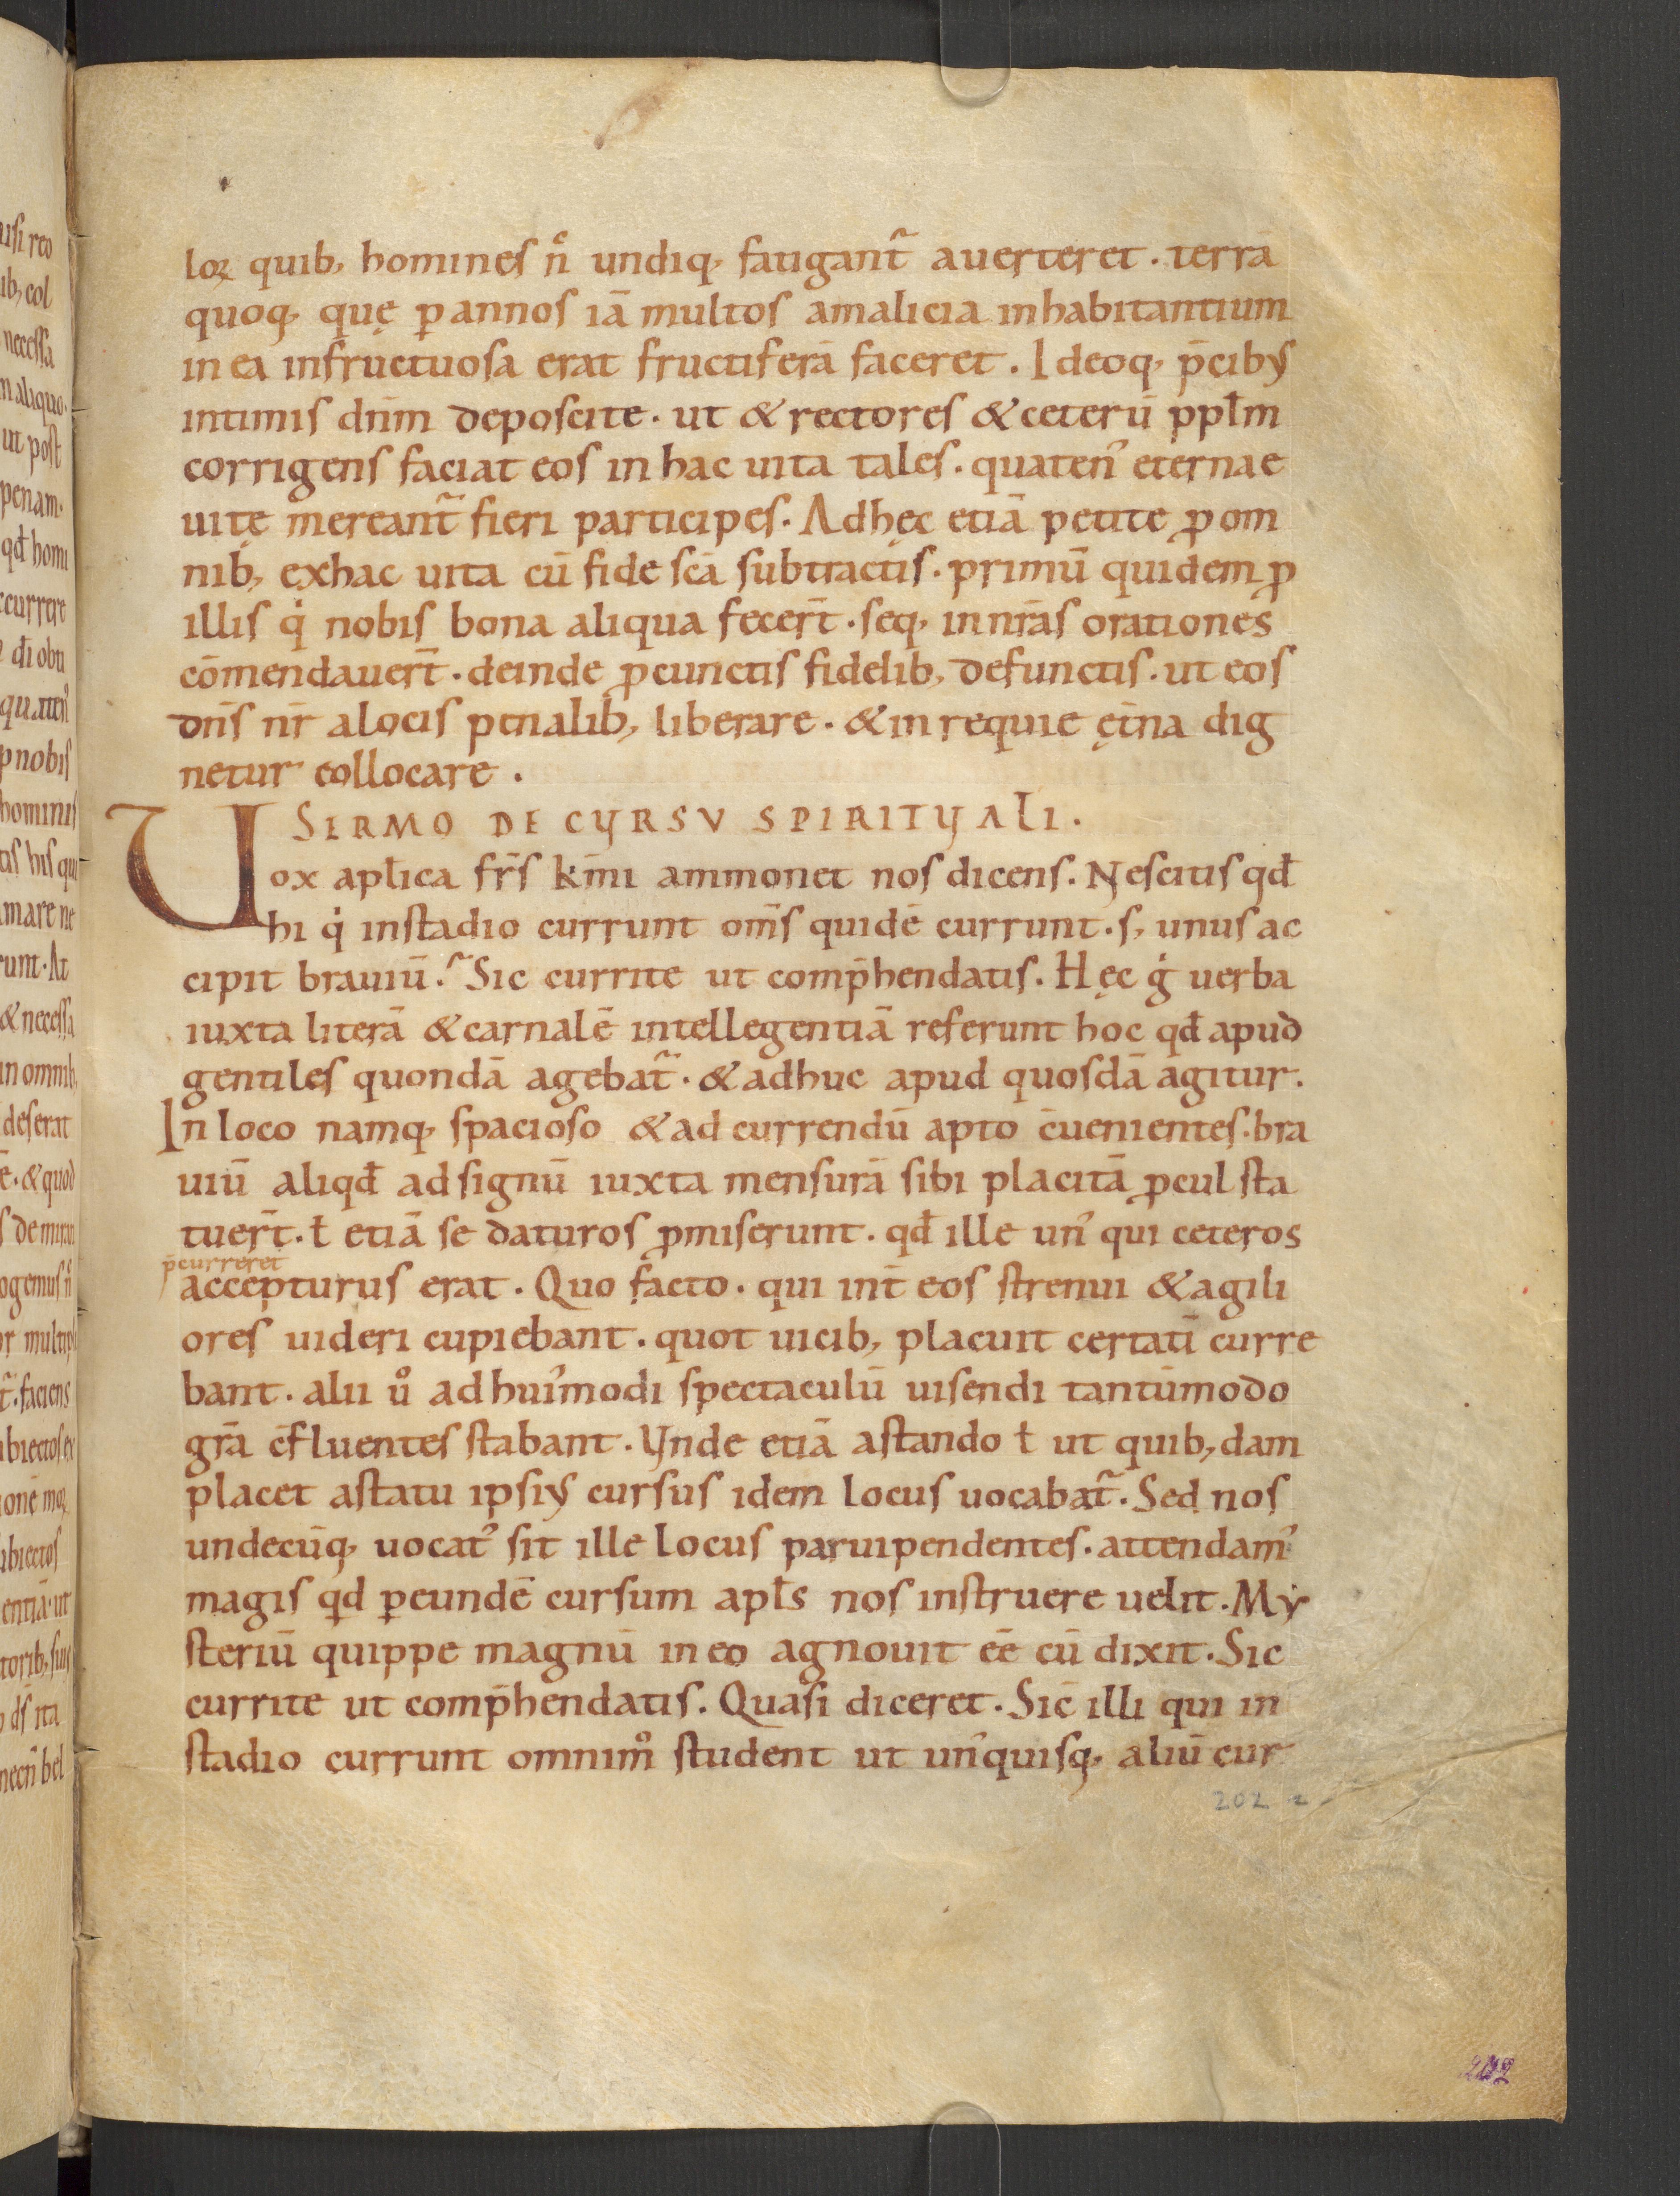 loꝝ quib; homines n̄ undiq; fatigant̃ auerteret. terrā
quoq; quę ꝑ annos iā multos amalicia inhabitantium
in ea infructuosa erat fructiferā faceret. Ideoq; p̄cibus
intimis dn̄m deposcite. ut & rectores & ceterū ppl̄m
corrigens faciat eos in hac uita tales. quaten᾽ eternae
uitę mereant̃ fieri participes. Adhęc etiā petite ꝓ om
nib; exhac uita cū fide sc̄a subtractis. primū quidem ꝓ
illis q̇ nobis bona aliqua fecer̄t. seq; in nr̄as orationes
cōmendauer̄t. deinde ꝓcunctis fidelib; defunctis. ut eos
dn̄s nr̄ alocis penalib; liberare. & in requie ęt̄na dig
netur collocare.
SERMO DE CURSU SPIRITUALI.
Uox apl̄ica fr̄s km̄i ammonet nos dicens. Nescitis qd̄
hi q̇ instadio currunt om̄s quidē currunt. s; unus ac
cipit brauiū. Sic currite ut comp̄hendatis. Hęc g̊ uerba
iuxta literā & carnalē intellegentiā referunt hoc qd̄ apud
gentiles quondā agebat̃. & adhuc apud quosdā agitur.
In loco namq; spacioso & ad currendū apto c̄uenientes. bra
uiū aliqd̄ ad signū iuxta mensurā sibi placitā ꝓcul sta
tuer̄t. ł etiā se daturos ꝓmiserunt. qd̄ ille un᾽ qui ceteros
p̄curreret
accepturus erat. Quo facto. qui int̄ eos strenui & agili
ores uideri cupiebant. quot uicib; placuit certatī curre
bant. alii ů ad hui᾽modi spectaculū uisendi tantūmodo
gr̄a c̄fluentes stabant. Unde etiā astando ł ut quib;dam
placet astatu ipsius cursus idem locus uocabat̃. Sed nos
undecūq; uocat᾽ sit ille locus paruipendentes. attendam᾽
magis qd ꝑeundē cursum apl̄s nos instruere uelit. My
steriū quippe magnū in eo agnouit ēē cū dixit. Sic
currite ut comp̄hendatis. Quasi diceret. Sic illi qui in
stadio currunt omnim̊ student ut un᾽quisq; aliū cur
202
202